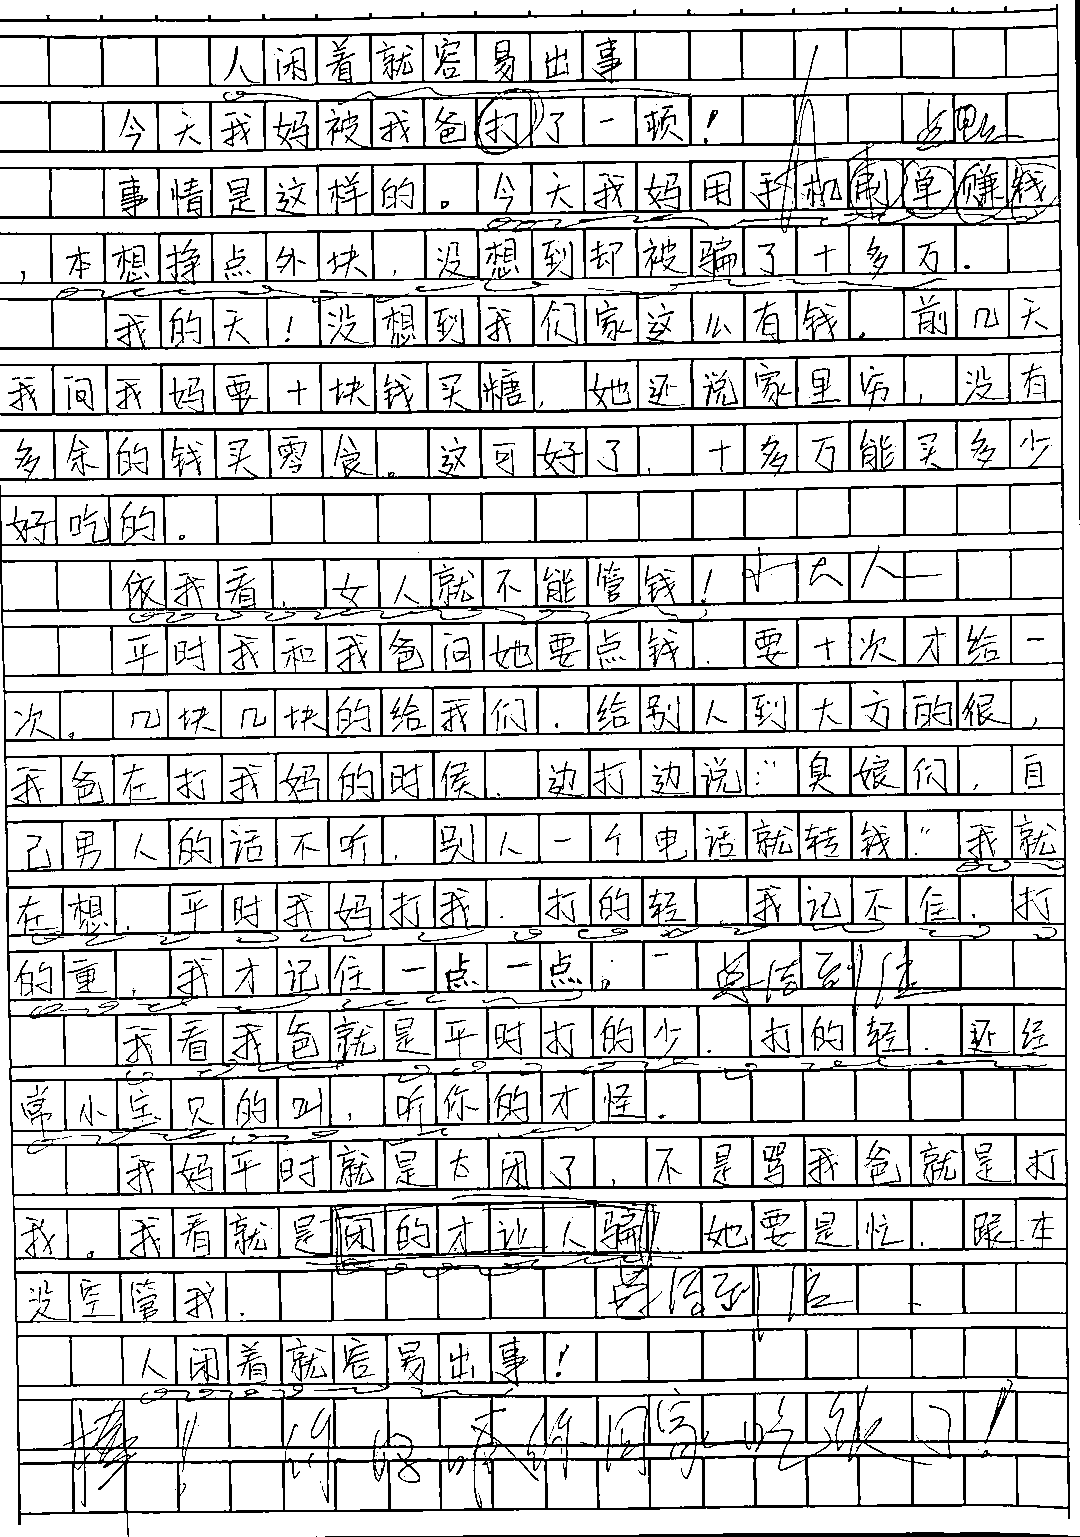 人闲着就容易出事
今天我妈被我爸打了一顿！ 点题
事情是这样的。今天我妈用手机刷单赚钱
，本想挣点外块，没想到却被骗了十多万.
我的天！没想到我们家这么有钱. 前几天
我问我妈要十块钱买糖，她还说家里穷，没有
多余的钱买零食。这可好了，十多万能买多少
好吃的。
依我看，女人就不能管钱！ 小大人
平时我和我爸问她要点钱. 要十次才给一
次。几块几块的给我们. 给别人到大方的很，
我爸在打我妈的时侯. 边打边说:"臭娘们，自
己男人的话不听，别人一个电话就转钱" 我就
在想，平时我妈打我. 打的轻，我记不住. 打
的重，我才记住一点一点. 总结到位
我看我爸就是平时打的少. 打的轻. 还经
常小宝贝的叫，听你的才怪.
我妈平时就是太闭了，不是骂我爸就是打
我。我看就是闭的才让人骗 她要是忙. 跟本
没空管我. 总结到位
人闲着就容易出事！
棒！你 你回家吃饭了！